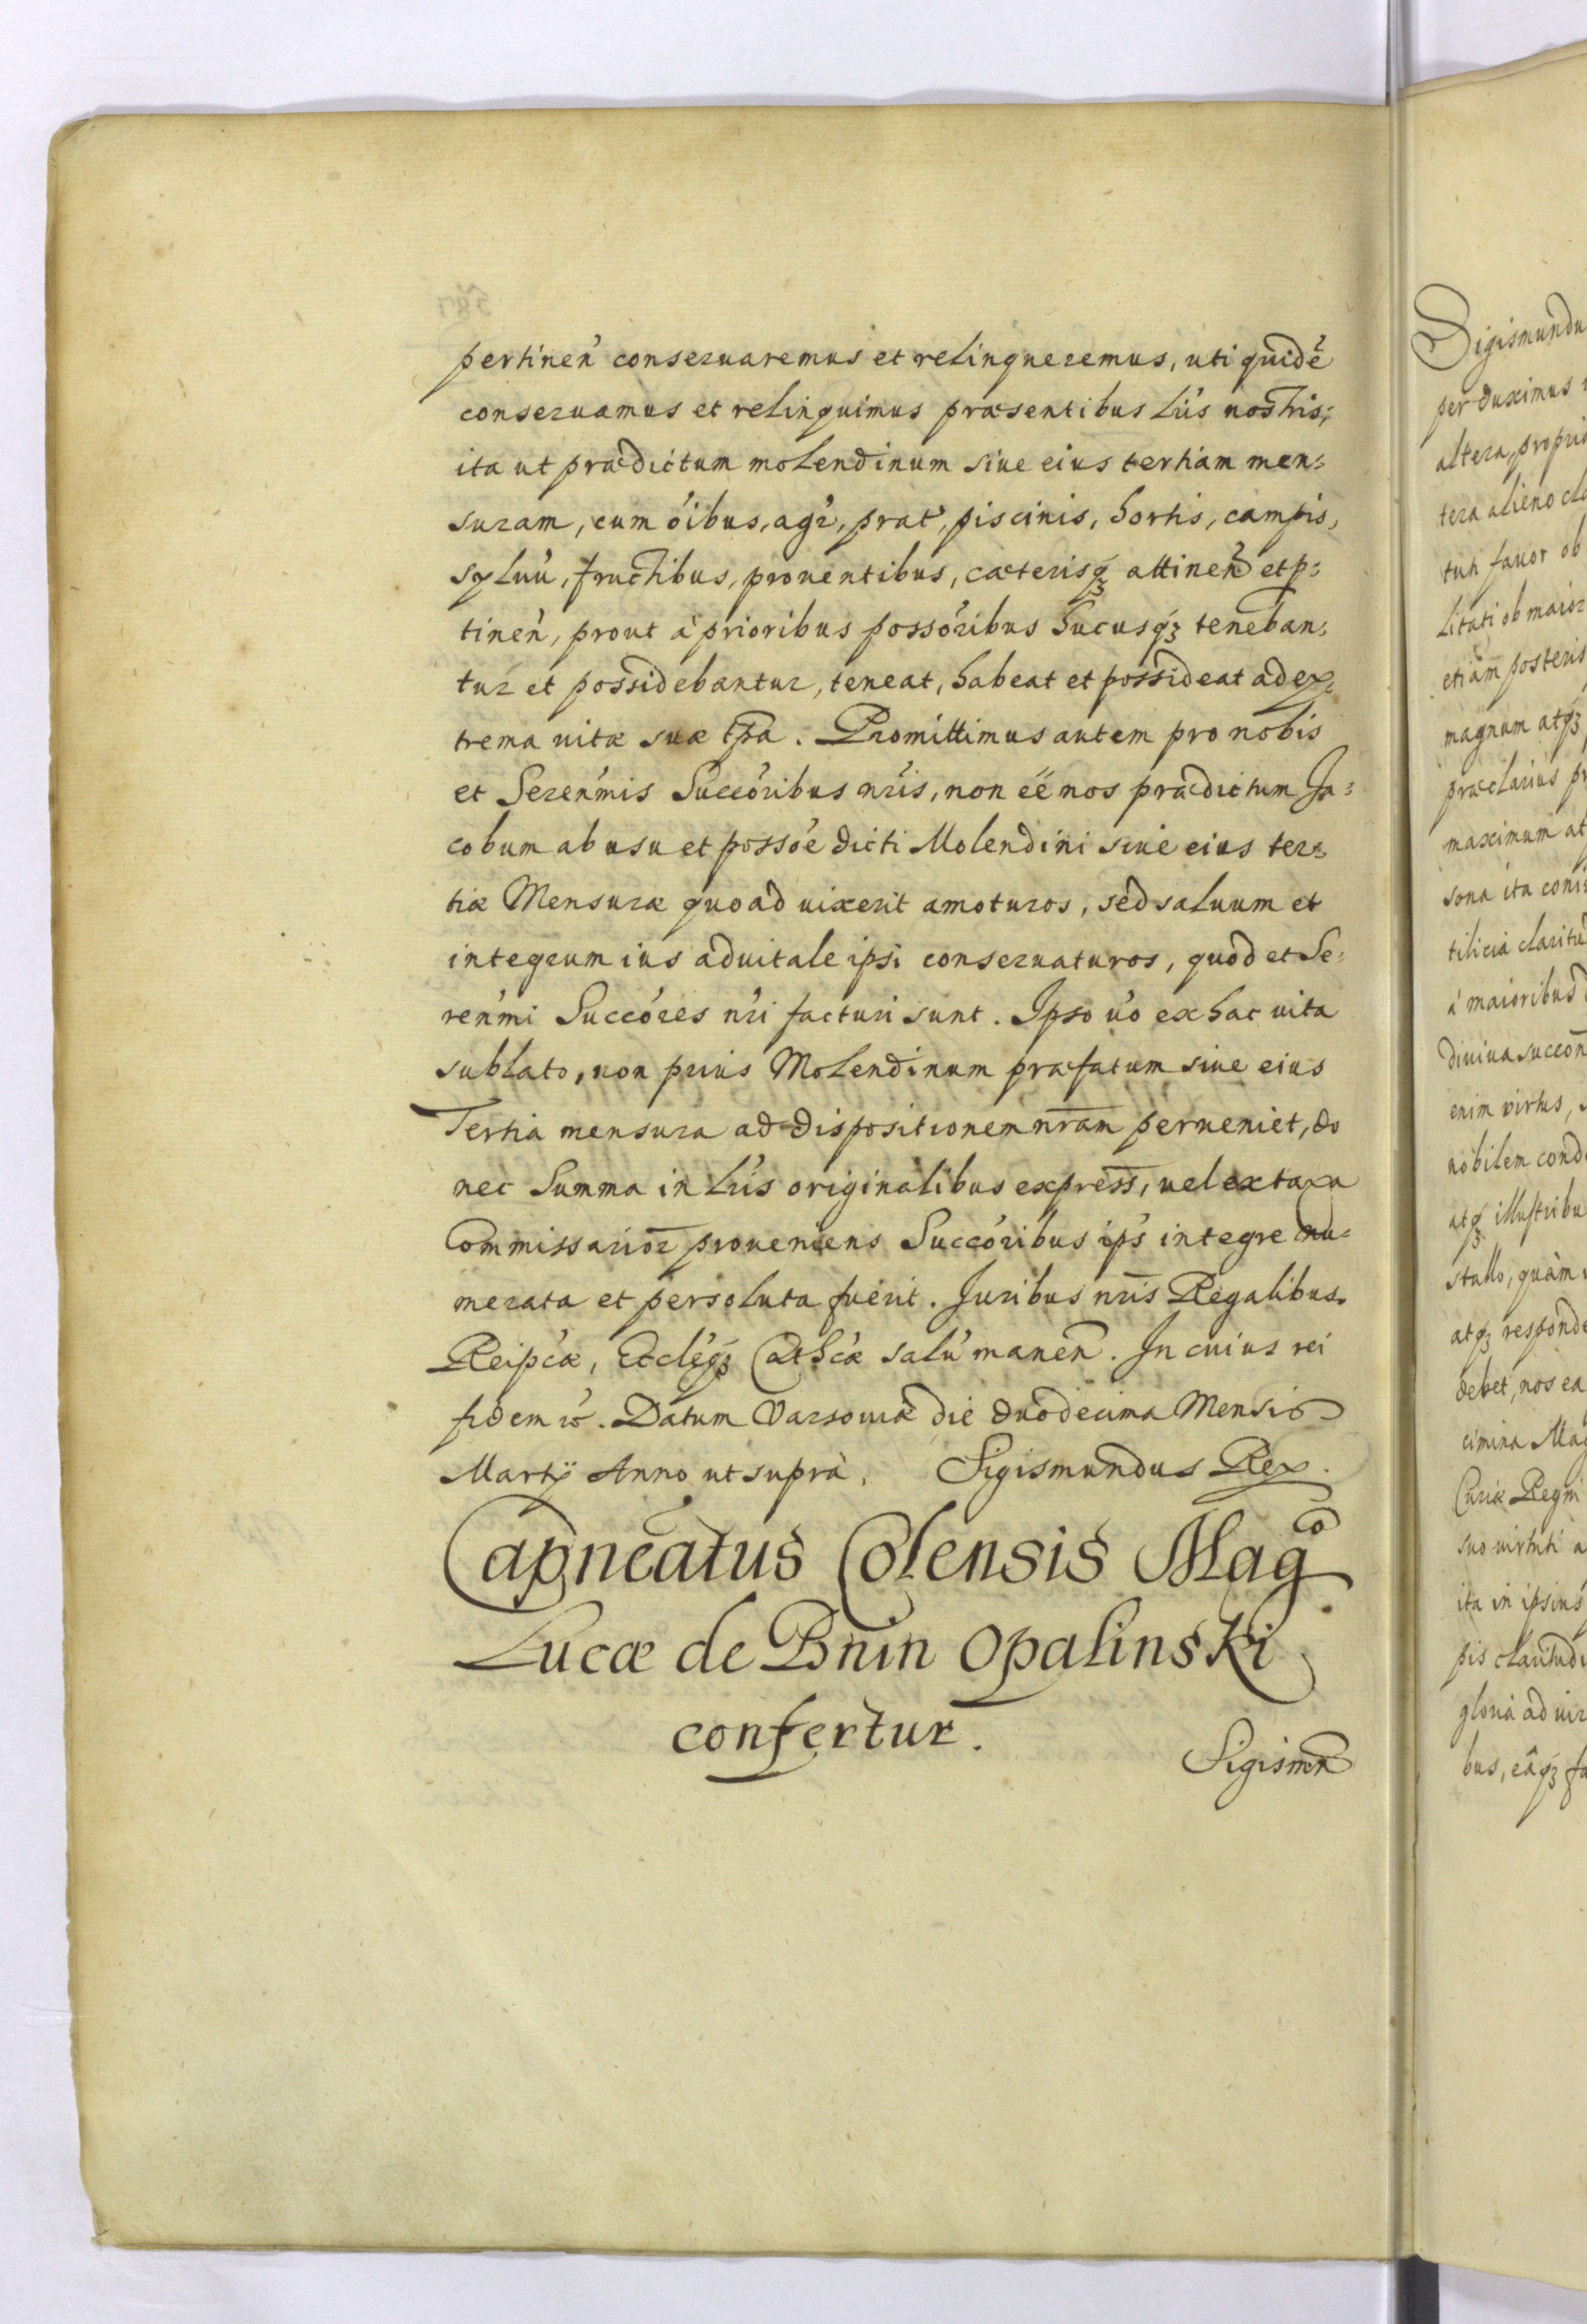 pertinen̕ conseruaremus et relinqueremus, uti quidē
conseruamus et relinquimus præsentibus Lr̕is nostris,
ita ut prædictum molendinum siue eius tertiam men:
suram, cum o̕ibus, agr̕, prat̕, piscinis, hortis, campis,
syluis̕, fructibus, prouentibus, cæterisqꝫ attinen̕ et p:
tinen̕, prout à prioribus posso̕ribus hucusqꝫ teneban:
tur et possidebantur, teneat, habeat et possideat ad ex:
trema uitæ suæ tp̄a. Promittimus autem pro nobis
et Seren̕mis Succo̕ribus nr̕is, non ee̕ nos prædictum Ja:
cobum ab usu et posso̕e dicti Molendini siue eius ter:
tiæ Mensuræ quoad uixerit amoturos, sed saluum et
integrum ius aduitale ipsi conseruaturos, quod et Se:
ren̕mi Succo̕res nr̕i facturi sunt. Ipso u̕o ex hac uita
sublato, non prius Molendinum præfatum siue eius
Tertia mensura ad dispositionem nr̄am perueniet, do
nec Summa in Lr̕is originalibus express̄, uel ex taxa
Commissarior̄ proueniens Succo̕ribus ips̕ integre nu:
merata et persoluta fuerit. Juribus nr̄is Regalibus
Reip̕cæ, Eccle̕qꝫ Cathc̕æ salu̕ manen̄. In cuius rei
fidem etc̕. Datum Varsouiæ die duodecima Mensis
Martij Anno ut suprà. Sigismundus Rex.
Capneatus Colensis Mag<sup>co</sup>
Lucæ de Bnin Opalinski
confertur.
Sigismn̄
Sigismundu
per duximus
altera, propri
tera alieno cla
tuti fauor ob
Litati ob maior
etiam posteris
magnum atqꝫ
præclarius pr
maximum at
sona ita coni
tilicia claritu
à maioribus
diuiua succon̄
enim virtus,
nobilem cond
atqꝫ illustribu
stallo, quàm
atqꝫ responde
debet, nos ea
cimina Mag
Curiæ Regni
suo uirtuti a
ita in ipsius
pis claritudi
gloria ad uir
bus, eâqꝫ fa